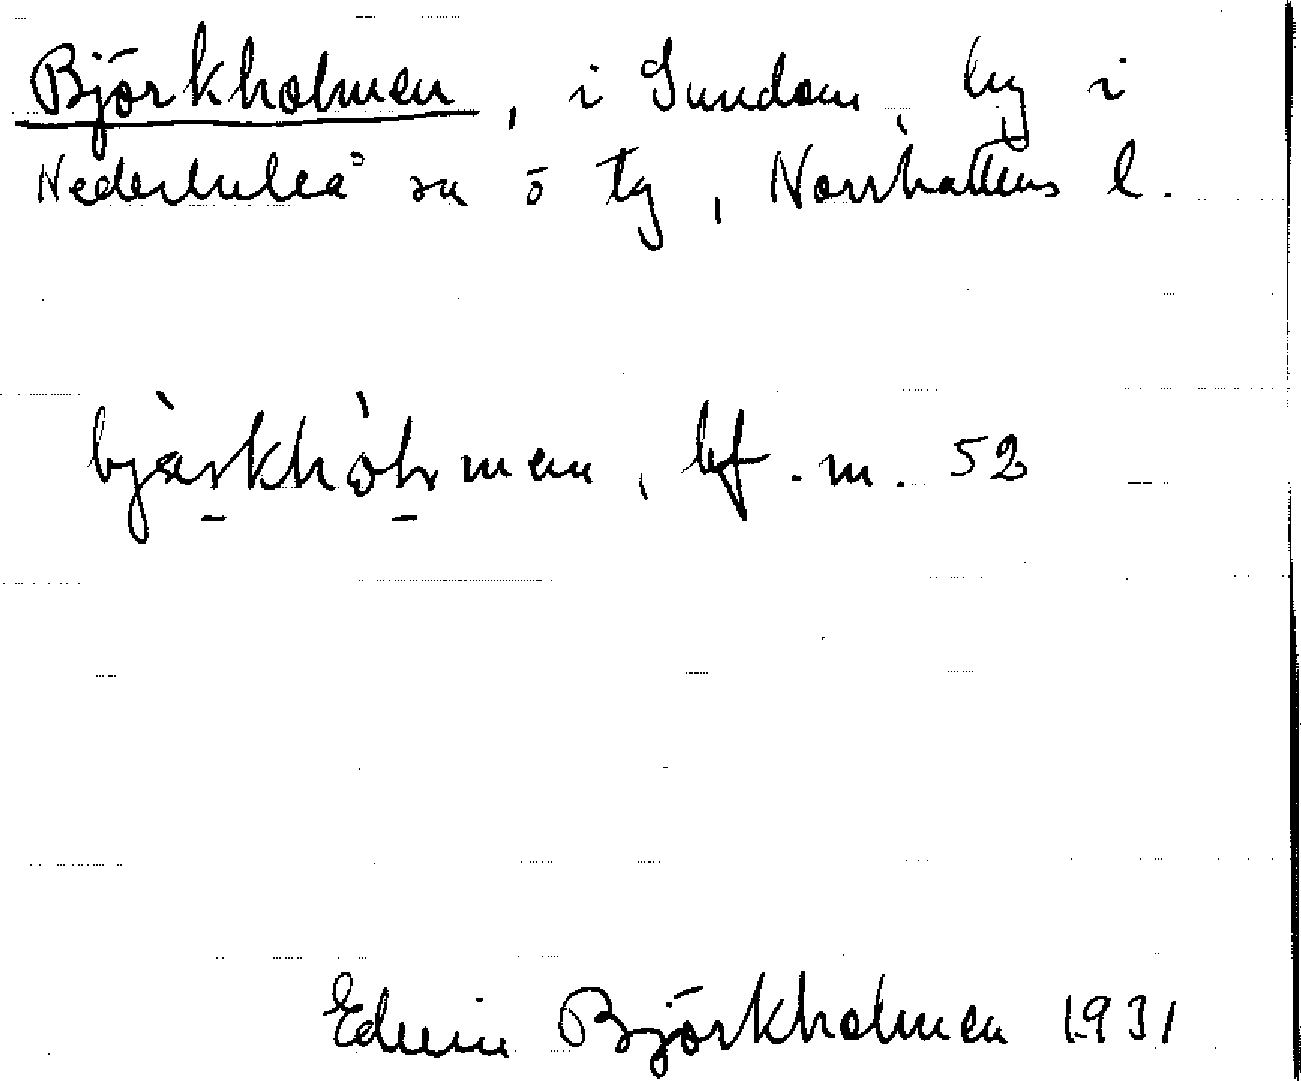 Björkholmen, i Sundom, by i
Nederluleå sn o tg, Norrbottens l.
bjàrkhòlmen, bf. m. 52
Edwin Björkholmen 1931